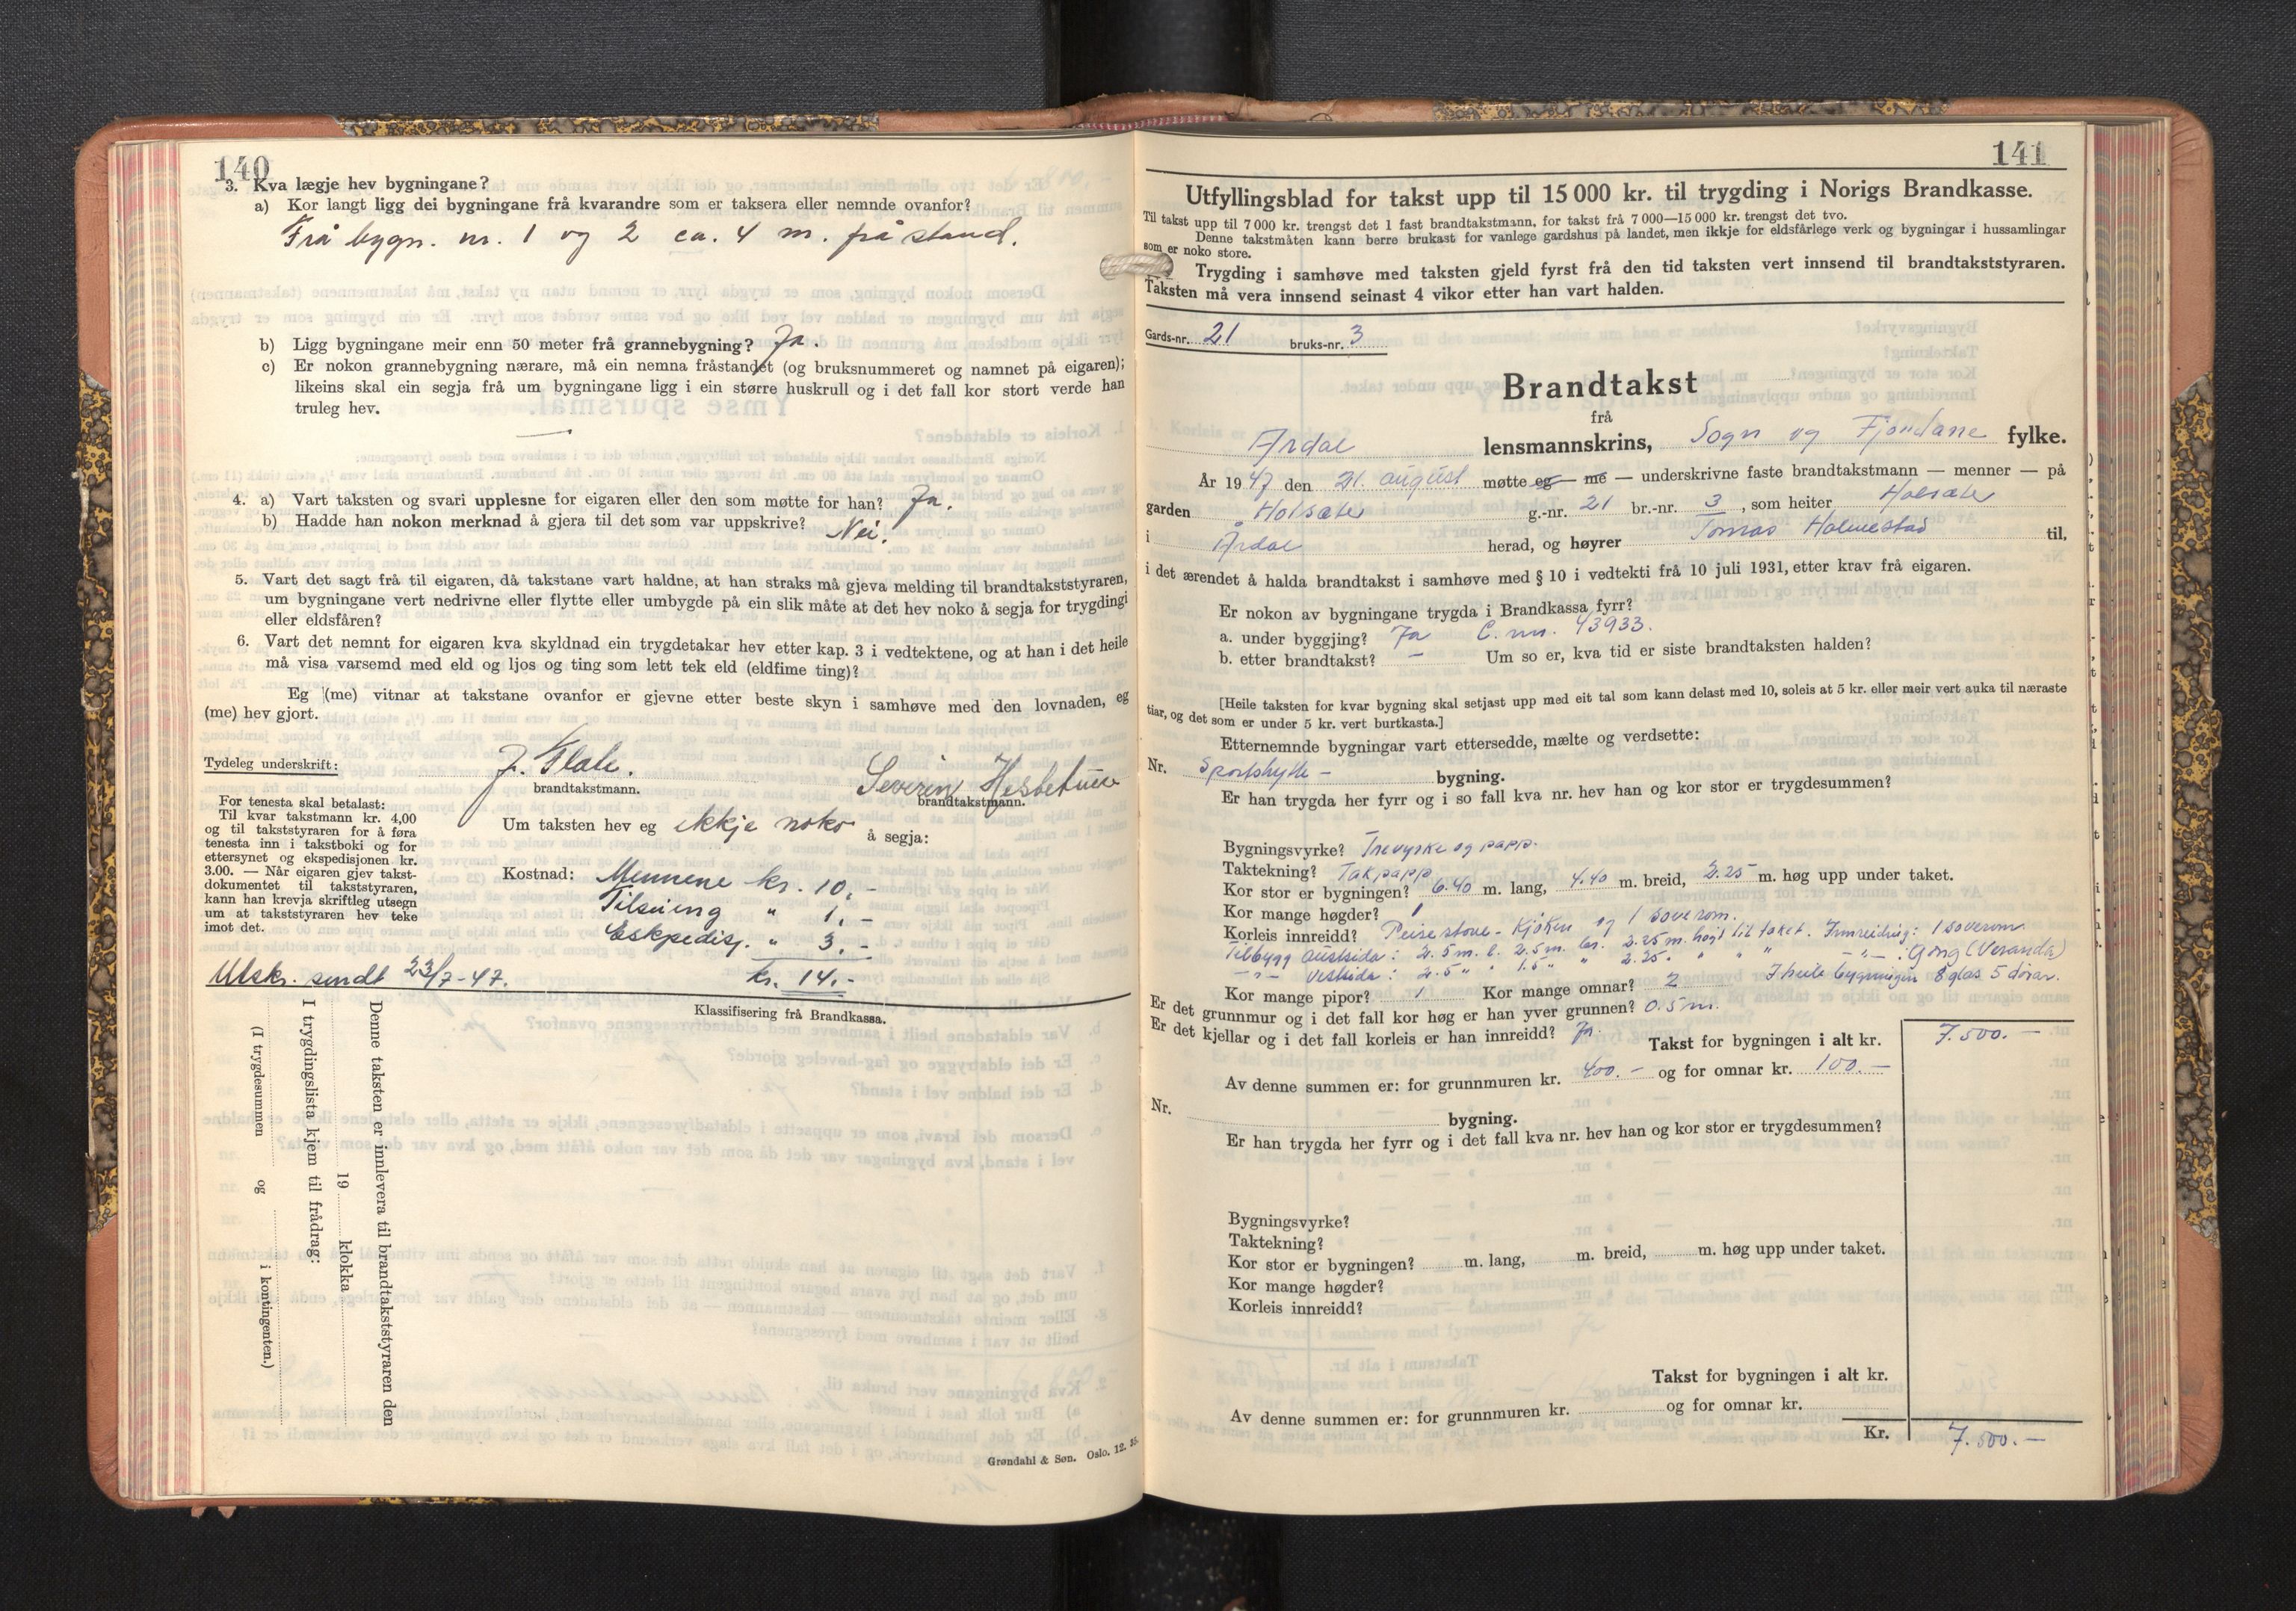 140
3. Kva lægje hev bygningane?
a) Kor langt ligg dei bygningane frå kvarandre som er taksera eller nemnde ovanfor?
Frå bygn. nr. 1 og 2 ca. 4 m. fråstand.
b) Ligg bygningane meir enn 50 meter frå grannebygning? Ja.
c) Er nokon grannebygning nærare, må ein nemna fråstandet (og bruksnummeret og namnet på eigaren);
likeins skal ein segja frå um bygningane ligg i ein større huskrull og i det fall kor stort verde han
truleg hev.
—
4. a) Vart taksten og svari upplesne for eigaren eller den som møtte for han? Ja.
b) Hadde han nokon merknad å gjera til det som var uppskrive? Nei.
5. Vart det sagt frå til eigaren, då takstane vart haldne, at han straks må gjeva melding til brandtakststyraren,
um bygningane vert nedrivne eller flytte eller umbygde på ein slik måte at det hev noko å segja for trygdingi
eller eldsfåren?
6. Vart det nemnt for eigaren kva skyldnad ein trygdetakar hev etter kap. 3 i vedtektene, og at han i det heile
må visa varsemd med eld og ljos og ting som lett tek eld (eldfime ting)?
Eg (me) vitnar at takstane ovanfor er gjevne etter beste skyn i samhøve med den lovnaden, eg
(me) hev gjort.
Tydeleg underskrift: J. Flate. Severin
brandtakstmann. brandtakstmann.
For tenesta skal betalast:
Til kvar takstmann kr. 4,00
og til takststyraren for å føra
tenesta inn i takstboki og for
ettersynet og ekspedisjonen kr.
3.00. — Når eigaren gjev takst-
dokumentet til takststyraren,
kann han krevja skriftleg utsegn
um at takststyraren hev teke
imot det.
Um taksten hev eg ikkje noko å segja:
Kostnad: Mennene kr. 10.-
Tilsuing " 1.-
Eskpedisj. " 3.-
kr. 14.-
Utskr. sendt 23/7-47.
Klassifisering frå Brandkassa.
Denne taksten er innlevera til brandtakststyraren den
19 klokka
I trygdingslista kjem til frådrag:
(I trygdesummen og i kontingenten.)
Grøndahl & Søn. Oslo. 12. 35.
141
Utfyllingsblad for takst upp til 15 000 kr. til trygding i Norigs Brandkasse.
Til takst upp til 7 000 kr. trengst det 1 fast brandtakstmann, for takst frå 7 000—15 000 kr. trengst det tvo.
Denne takstmåten kann berre brukast for vanlege gardshus på landet, men ikkje for eldsfårlege verk og bygningar i hussamlingar
som er noko store.
Trygding i samhøve med taksten gjeld fyrst frå den tid taksten vert innsend til brandtakststyraren.
Taksten må vera innsend seinast 4 vikor etter han vart halden.
Gards-nr. 21 bruks-nr. 3
Brandtakst
frå
Årdal lensmannskrins, Sogn og Fjordane fylke.
År 1947 den 21. august møtte eg — me — underskrivne faste brandtakstmann — menner — på
garden Holsæter g.-nr. 21 br.-nr. 3, som heiter Holsæter
i Årdal herad, og høyrer Tomas Holmestad til,
i det ærendet å halda brandtakst i samhøve med § 10 i vedtekti frå 10 juli 1931, etter krav frå eigaren.
Er nokon av bygningane trygda i Brandkassa fyrr?
a. under byggjing? Ja C. nr. 43933.
b. etter brandtakst? — Um so er, kva tid er siste brandtaksten halden?
[Heile taksten for kvar bygning skal setjast upp med eit tal som kann delast med 10, soleis at 5 kr. eller meir vert auka til næraste
tiar, og det som er under 5 kr. vert burtkasta.]
Etternemnde bygningar vart ettersedde, mælte og verdsette:
Nr. Sportshytte - bygning.
Er han trygda her fyrr og i so fall kva nr. hev han og kor stor er trygdesummen?
Bygningsvyrke? Trevyrke og papp.
Taktekning? Takpapp
Kor stor er bygningen? 6.40 m. lang, 4.40 m. breid, 2.25 m. høg upp under taket.
Kor mange høgder? 1
Korleis innreidd? Peisestove - Kjøken og 1 soverom.
Tilbygg austsida: 2.5 m. l. 2.5 m. br. 2.25 m. høgt til taket. Innreidning: 1 soverom
—"— Vestsida: 2.5 " " 1.5 " " 2.25 " " " " —"—: Gong (Veranda)
Kor mange pipor? 1 Kor mange omnar? 2 I heile bygningen 8 glas 5 dører.
Er det grunnmur og i det fall kor høg er han yver grunnen? 0.5 m.
Er det kjellar og i det fall korleis er han innreidd? Ja.
Takst for bygningen i alt kr. 7.500.-
Av denne summen er: for grunnmuren kr. 400.- og for omnar kr. 100.-
Nr. bygning.
Er han trygda her fyrr og i det fall kva nr. hev han og kor stor er trygdesummen?
Bygningsvyrke?
Taktekning?
Kor stor er bygningen? m. lang, m. breid, m. høg upp under taket.
Kor mange høgder?
Korleis innreidd?
Takst for bygningen i alt kr.
Av denne summen er: for grunnmuren kr. og for omnar kr.
Kr. 7.500.-